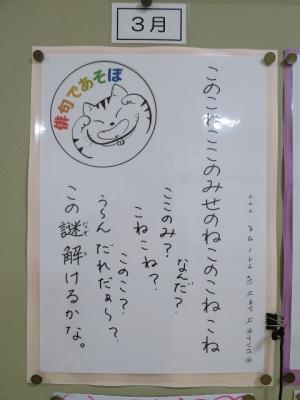 3月
俳句であそぼ
このこねここのみせのねこのこねこね
なんだ?
ここのみ?
こねこね?
このこ?
う〜ん だれだぁ〜?
この謎解けるかな。